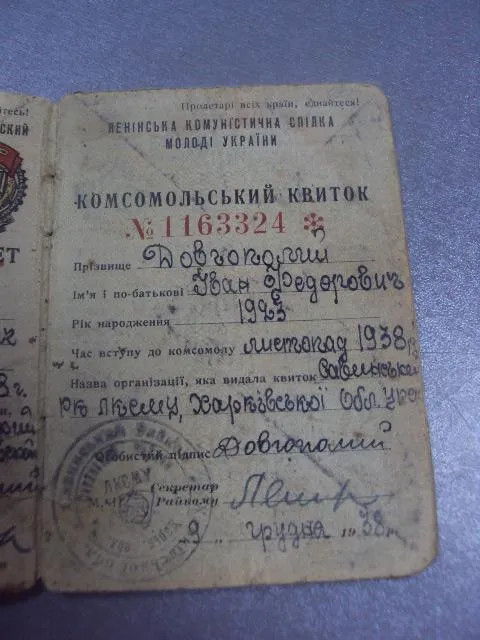 Пролетарі всіх країн, єднайтесь!
ЛЕНІНСЬКА КОМУНІСТИЧНА СПІЛКА
МОЛОДІ УКРАЇНИ
КОМСОМОЛЬСЬКИЙ КВИТОК
№ 1163324 *
Прізвище Довгополий
Ім'я і по-батькові Іван Федорович
Рік народження 1923
Час вступу до комсомолу листопад 1938 р
Назва організації, яка видала квиток Савинський
РК ЛКСМУ, Харківської Обл.
Особистий підпис Довгополий
М. П. Секретар
Райкому
9 " грудня 1938 р.